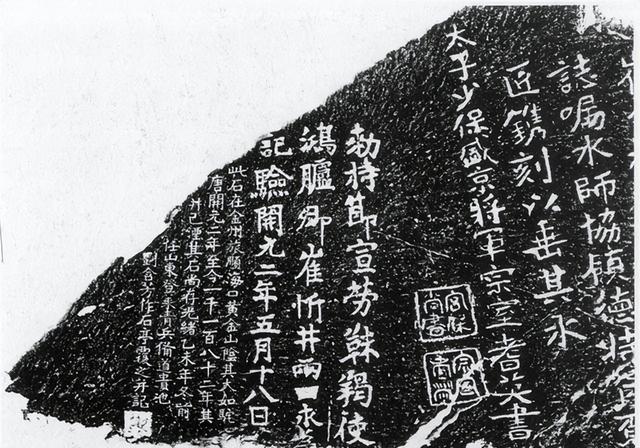 誌囑水師協領德特賀
匠鐫刻以垂其永
太子少保盛京將軍宗室耆英書
宮保尚書
勅持節宣勞靺羯使
鴻臚卿崔忻井兩口永
記驗開元二年五月十八日
此石在金州旅順海口黃金山陰其大如駝
唐開元二年至今一千一百八十二年其
井已湮其石尚存光緒乙未年冬前
任山東登萊青兵備道貴池
劉含芳作石亭覆之并記